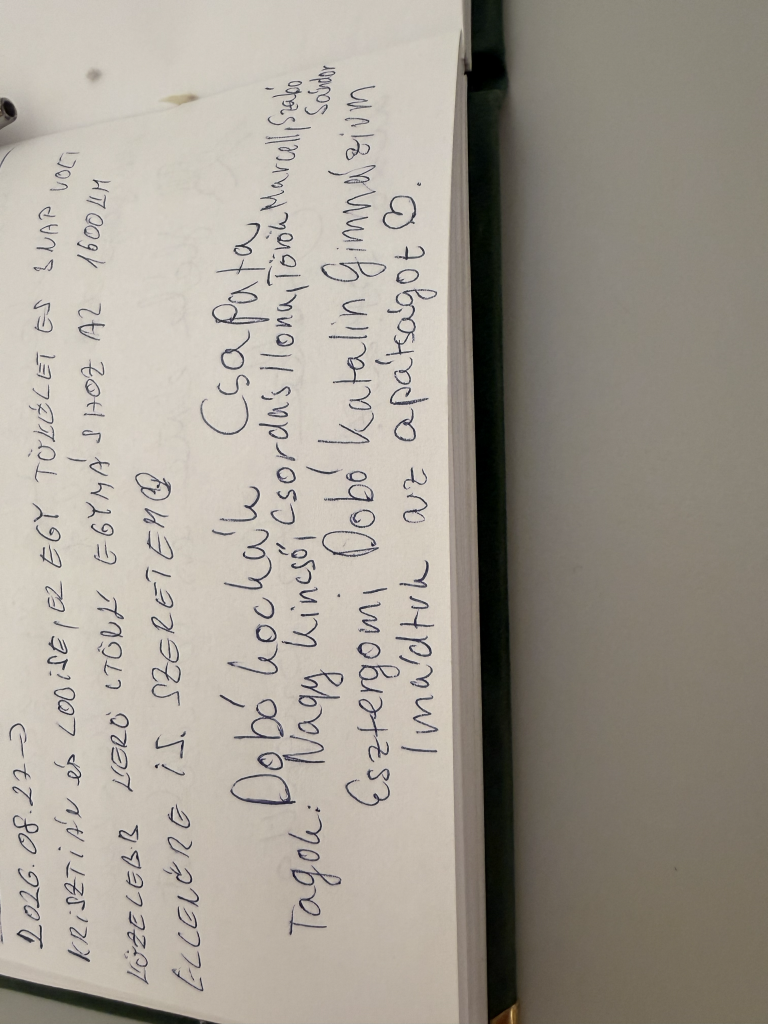 2026.08.27→
KRISZTIÁN és LOUISE, EZ EGY TÖKÉLET ES 3 NAP VOLT
KÖZELEBB KERÜLTÜNK EGYMÁSHOZ AZ 1600KM
ELLENÉRE IS. SZERETEM
Dobó kockák Csapata
Tagok: Nagy Kincső, Csordás Ilona, Török Marcell, Szabó
Sándor
Esztergom, Dobó Katalin Gimnázium
Imádtuk az apátságot ♡.